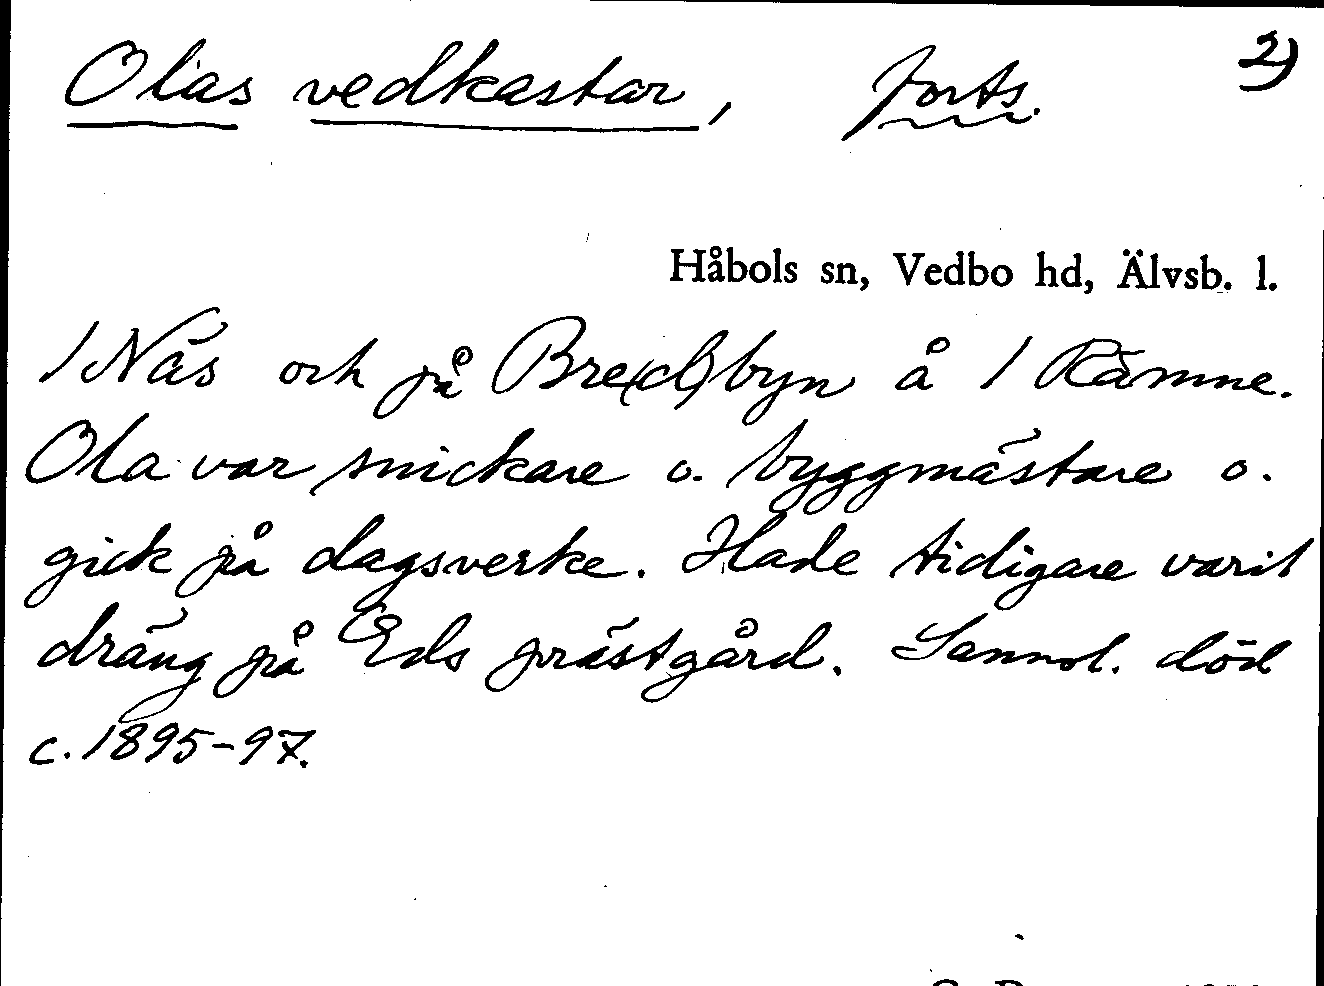 Olas vedkastar, forts. 2)
Håbols sn, Vedbo hd, Älvsb. l.
/ Näs och på Bre(d)byn å / Råmne.
Ola var snickare o. byggmästare o.
gick på dagsverke. Hade tidigare varit
dräng på Eds prästgård. Sannol. död
c. 1895-97.